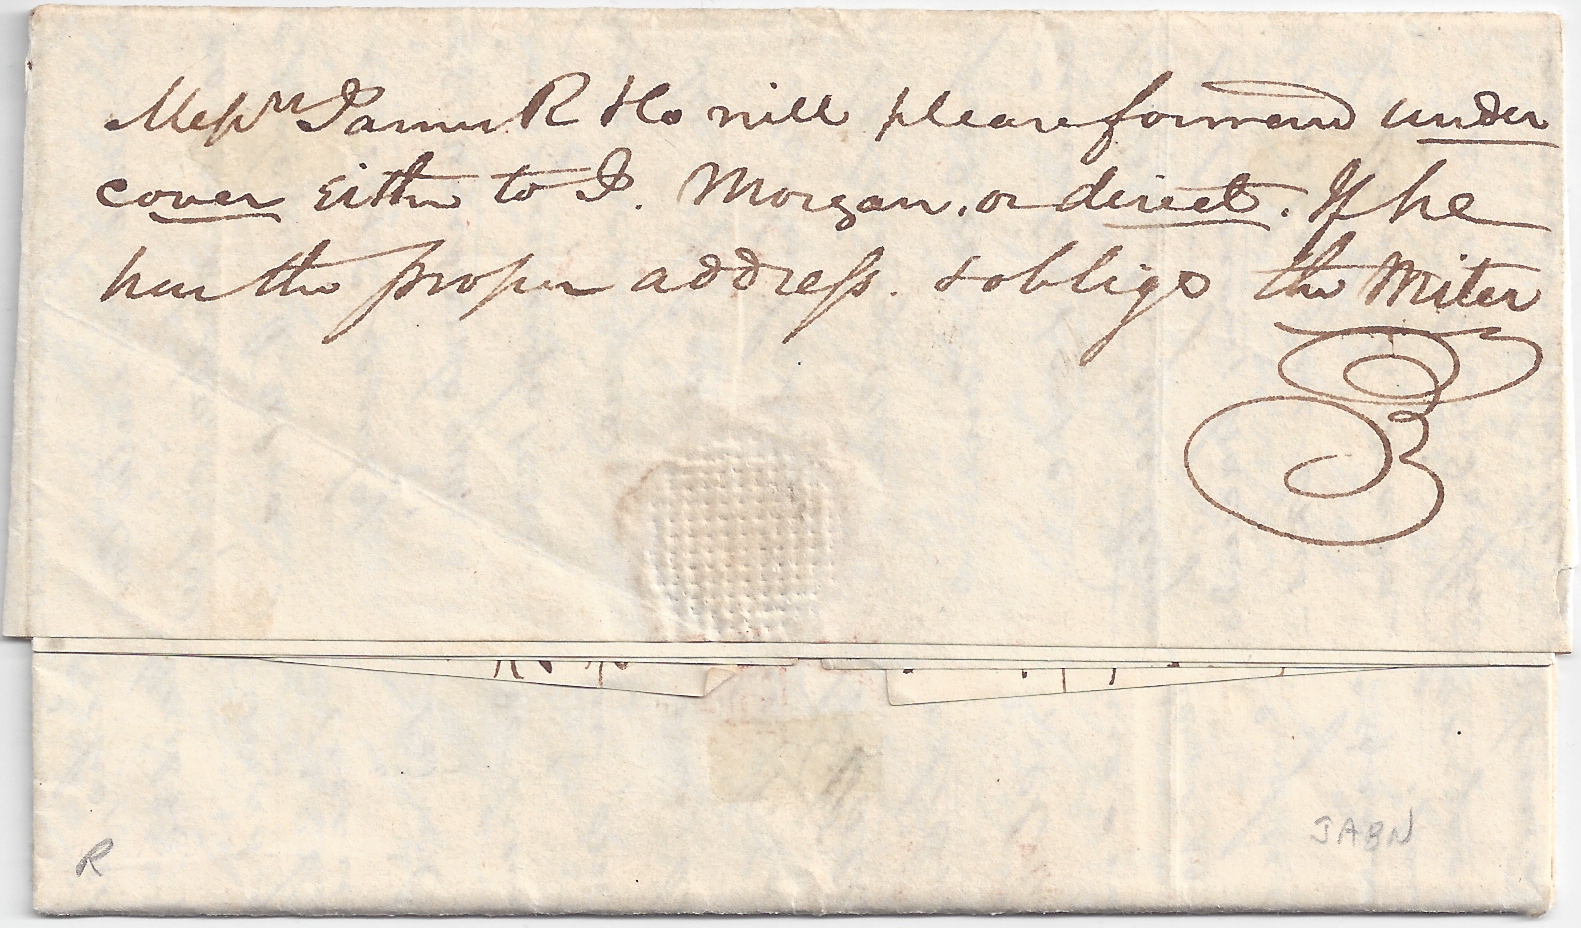 Messrs James R Ho will please forward under
cover Either to J. Morgan, or direct. If he
has the proper address. & oblige the Writer
R
JABN